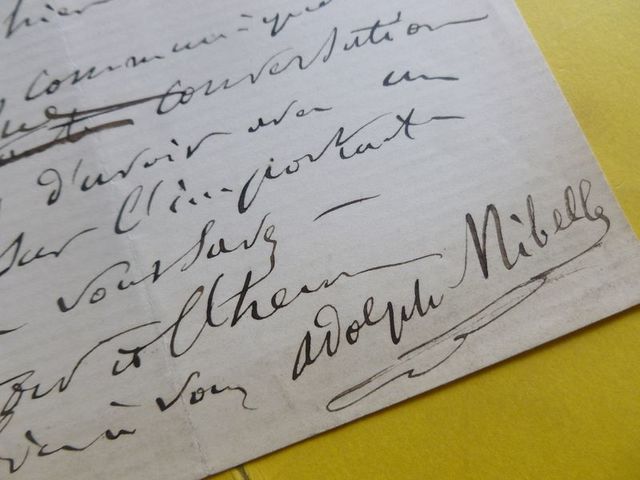 hier
communiqué
conversation
d'avoir avec un
sur l'important
vous savez —
bien à vous Adolphe Nibelle